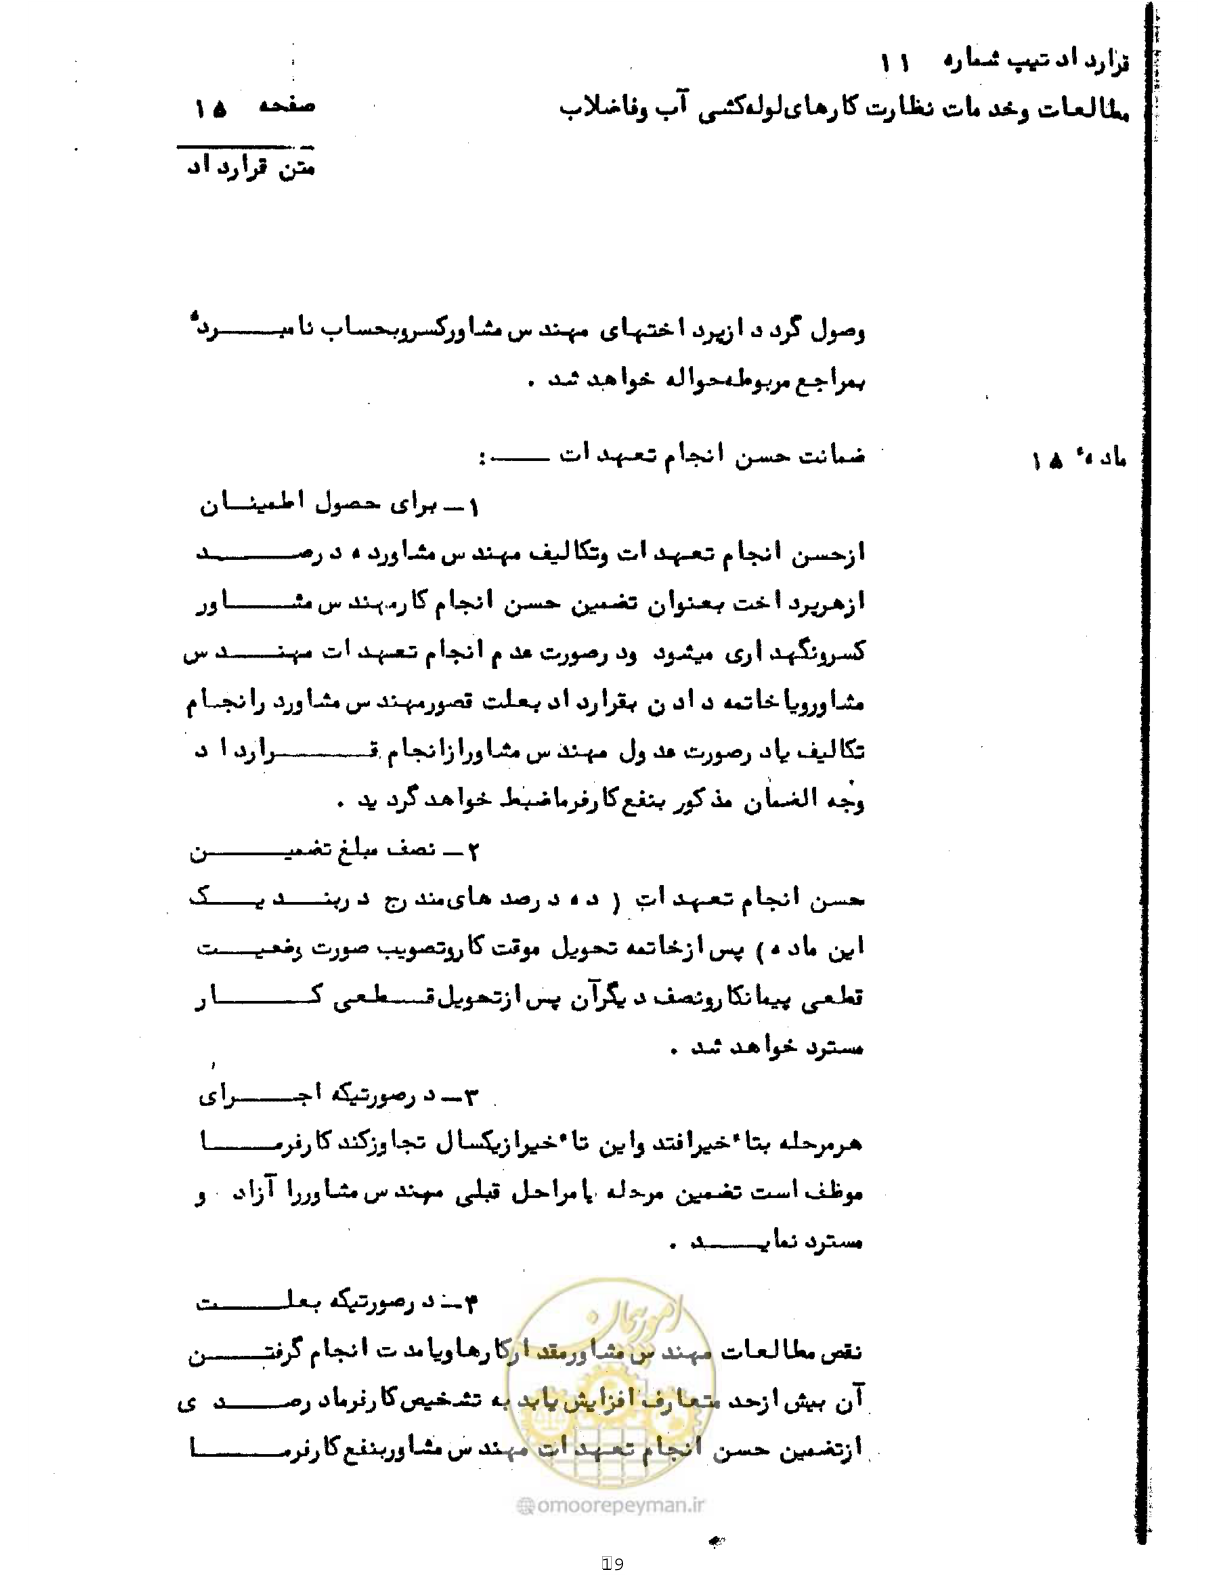 قرارداد تیپ شماره ۱۱
مطالعات وخدمات نظارت کارهای لوله‌کشی آب وفاضلاب
صفحه ۱۵
متن قرارداد
وصول گردد ازپرداختهای مهندس مشاورکسروبحساب نامبرده
بمراجع مربوطه حواله خواهد شد .
ماده ۱۵
ضمانت حسن انجام تعهدات :
۱ـ برای حصول اطمینان
ازحسن انجام تعهدات وتکالیف مهندس مشاورده درصد
ازهرپرداخت بعنوان تضمین حسن انجام کارمهندس مشاور
کسرونگهداری میشود ودرصورت عدم انجام تعهدات مهندس
مشاورویاخاتمه دادن بقرارداد بعلت قصورمهندس مشاوردرانجام
تکالیف یادرصورت عدول مهندس مشاورازانجام قرارداد
وجه الضمان مذکور بنفع کارفرماضبط خواهدگردید .
۲ـ نصف مبلغ تضمین
حسن انجام تعهدات ( ده درصدهای مندرج دربندیک
این ماده) پس ازخاتمه تحویل موقت کاروتصویب صورت وضعیت
قطعی پیمانکارونصف دیگرآن پس ازتحویل قطعی کار
مسترد خواهد شد .
۳ـ درصورتیکه اجرای
هرمرحله بتاٴخیرافتد واین تاٴخیرازیکسال تجاوزکند کارفرما
موظف است تضمین مرحله یامراحل قبلی مهندس مشاوررا آزاد و
مسترد نماید .
۴ـ درصورتیکه بعلت
نقص مطالعات مهندس مشاورمقدارکارهاویامدت انجام گرفتن
آن بیش ازحد متعارف افزایش یابد به تشخیص کارفرمادرصدی
ازتضمین حسن انجام تعهدات مهندس مشاوربنفع کارفرما
امور پیمان
@omoorepeyman.ir
19